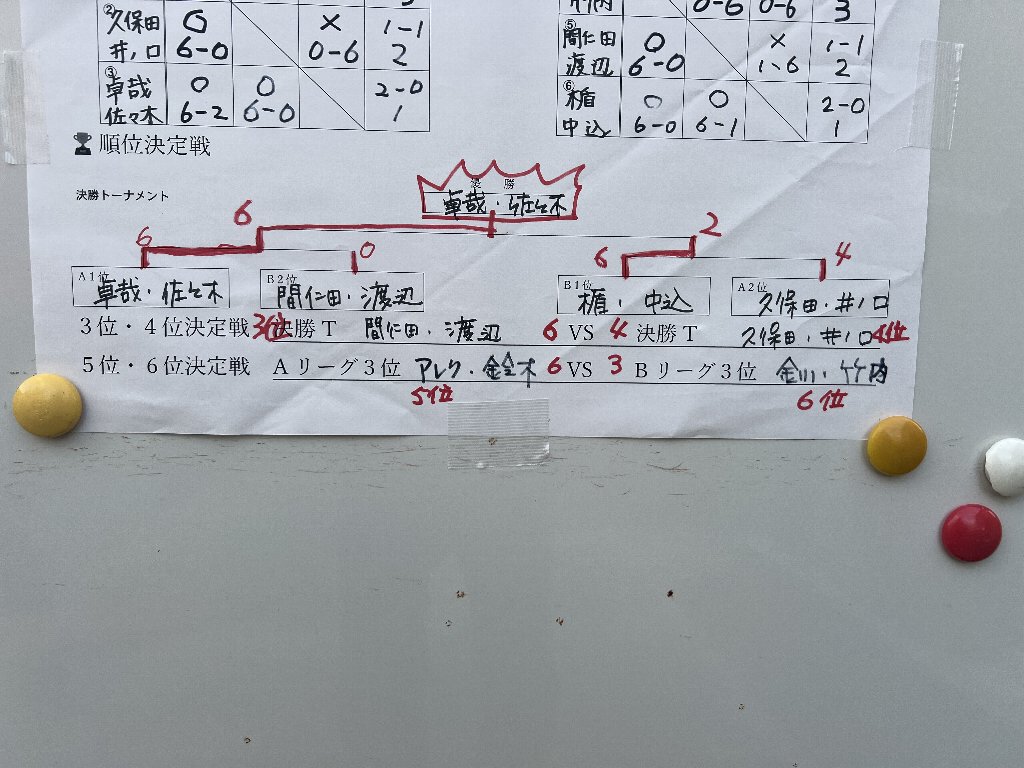 ② 久保田 ○ × 1-1
井ノ口 6-0 0-6 2
③ 卓哉 ○ ○ 2-0
佐々木 6-2 6-0 1
竹内 0-6 0-6 3
⑤ 間仁田 ○ × 1-1
渡辺 6-0 1-6 2
⑥ 楯 ○ ○ 2-0
中込 6-0 6-1 1
🏆 順位決定戦
決勝トーナメント
優 勝
卓哉・佐々木
6 2
6 0 6 4
A1位 卓哉・佐々木
B2位 間仁田・渡辺
B1位 楯・中込
A2位 久保田・井ノ口
3位・4位決定戦 3位 決勝T 間仁田・渡辺 6 VS 4 決勝T 久保田・井ノ口 4位
5位・6位決定戦 Aリーグ3位 アレク・鈴木 6 VS 3 Bリーグ3位 金川・竹内
5位 6位